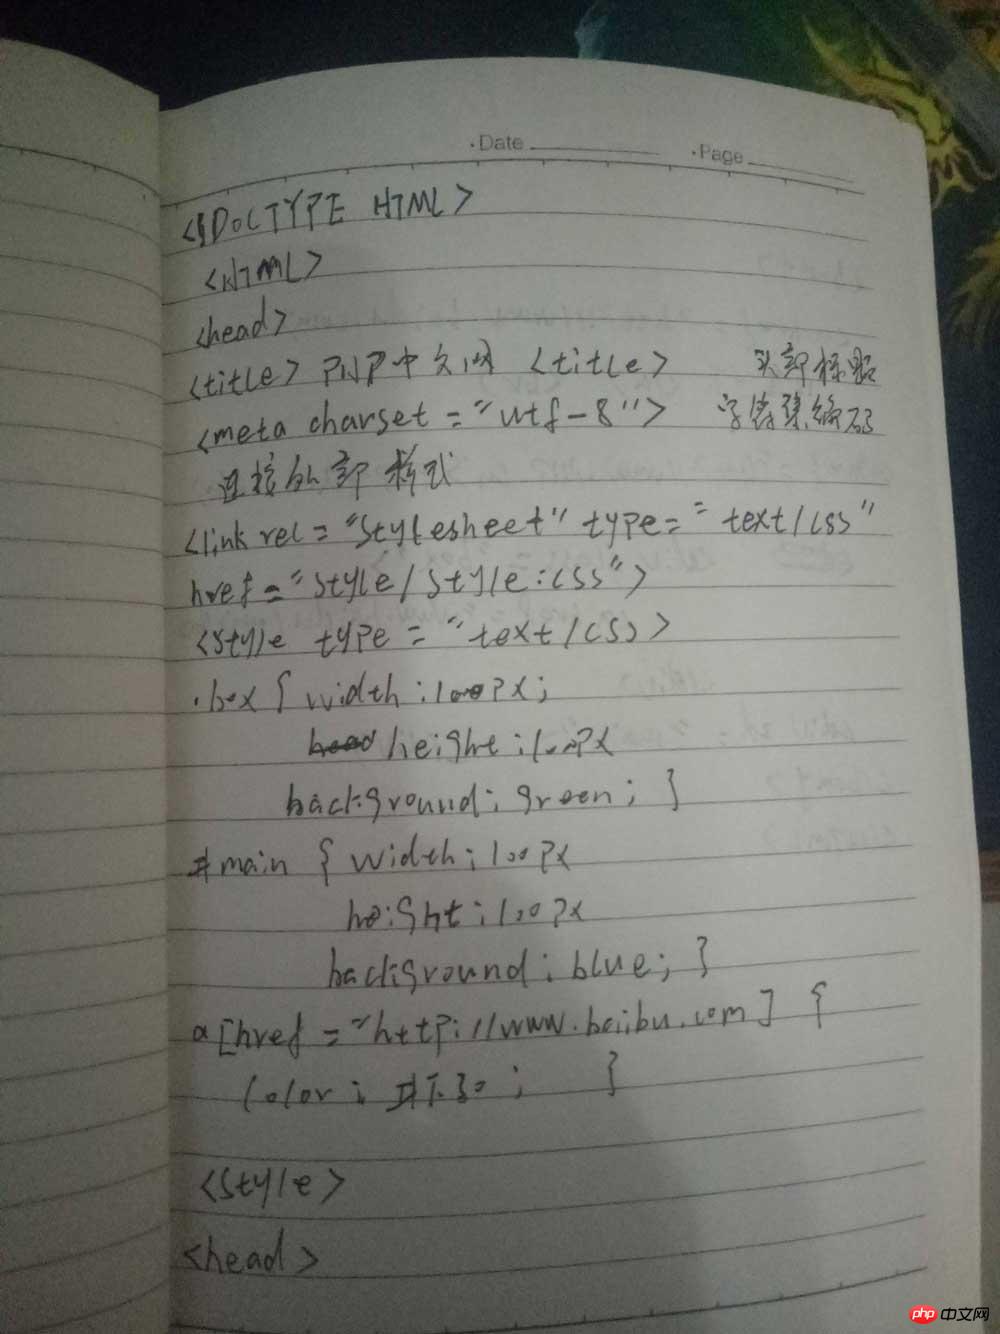 ·Date
·Page
<!DOCTYPE HTML>
<HTML>
<head>
<title> PHP中文网 <title> 头部标题
<meta charset = "utf-8"> 字符集编码
连接外部样式
<link rel = "stylesheet" type = "text/css"
href = "style/style:css">
<style type = "text/css>
.box { width:100px;
height:100px
background: green; }
#main { width: 100px
height: 100px
background: blue; }
a [href = "http://www.baibu.com] {
color:
<style>
<head>
php 中文网